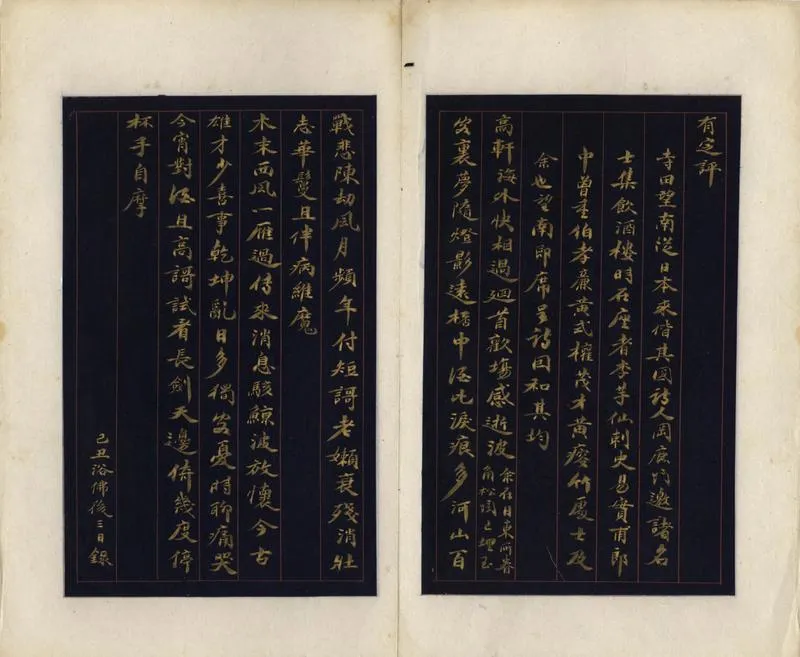 有定評
寺田望南從日本來偕其國詩人岡鹿門邀諸名
士集飲酒樓時在座者李芋仙刺史易實甫郎
中曾重伯孝廉黃式權茂才黃瘦竹處士及
余也望南即席言詩因和其均
高軒海外快相過迴首歡場感逝波余在日東所眷
角松周已埋玉
客裏夢隨燈影遠樽中酒比淚痕多河山百
戰悲陳劫風月頻年付短謌老嬾衰殘消壯
志華鬘且伴病維魔
木末西風一雁過傳來消息駭鯨波放懷今古
雄才少喜事乾坤亂日多獨客憂時聊痛哭
今宵對酒且高謌試看長劍天邊倚幾度停
杯手自摩
己丑浴佛後三日錄